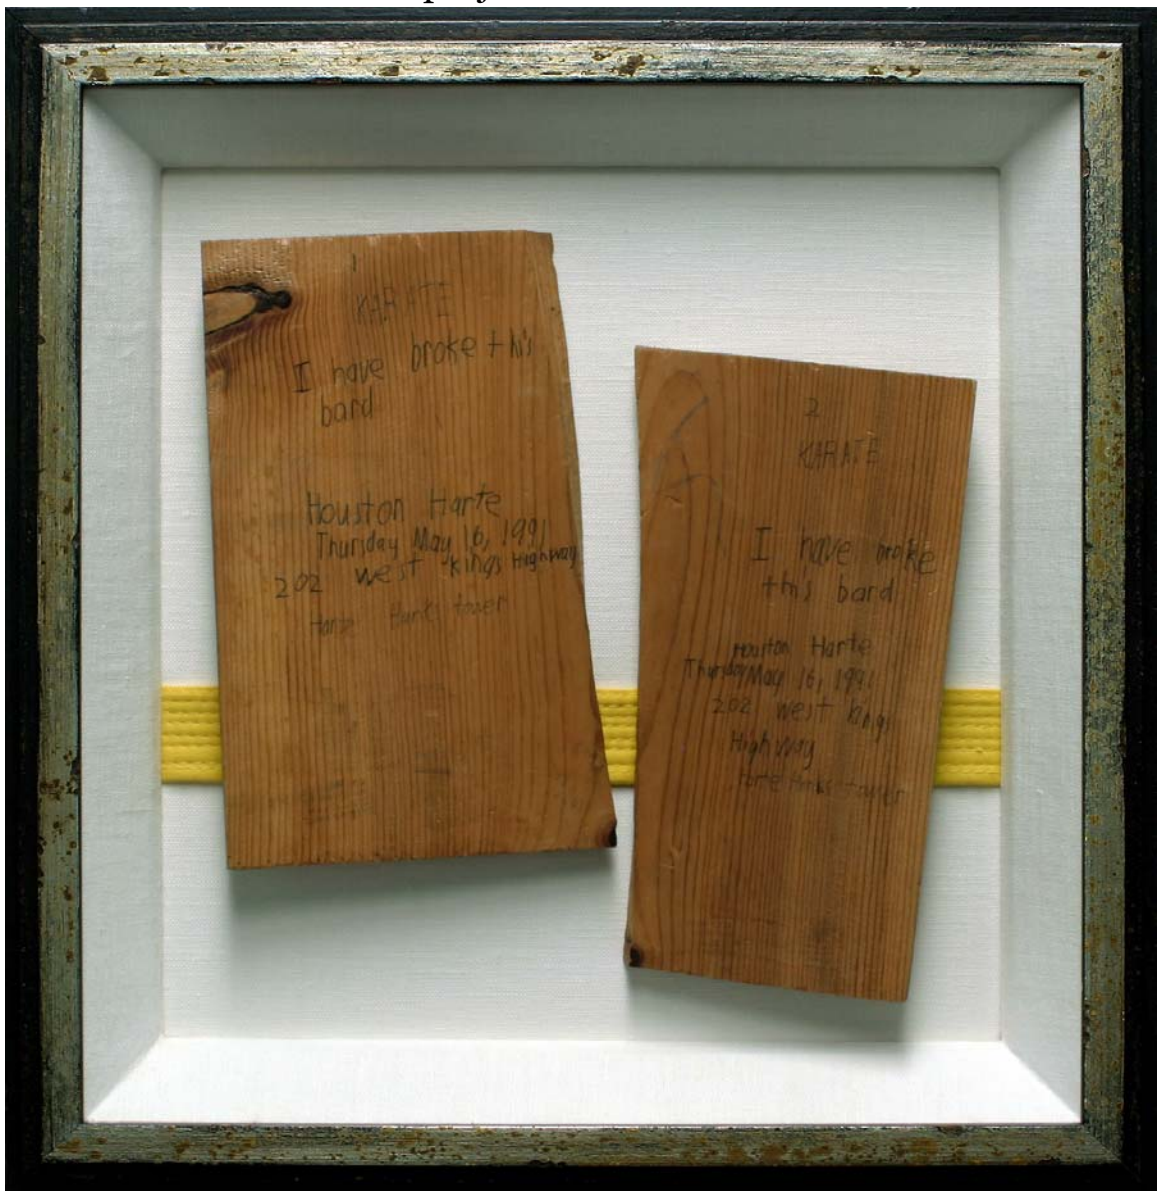 1
KARATE
I have broke this
bard
Houston Harte
Thursday May 16, 1991
202 west kings Highway
Harte Hanks tower
2
KARATE
I have broke
this bard
Houston Harte
Thursday May 16, 1991
202 west kings
Highway
Harte Hanks tower